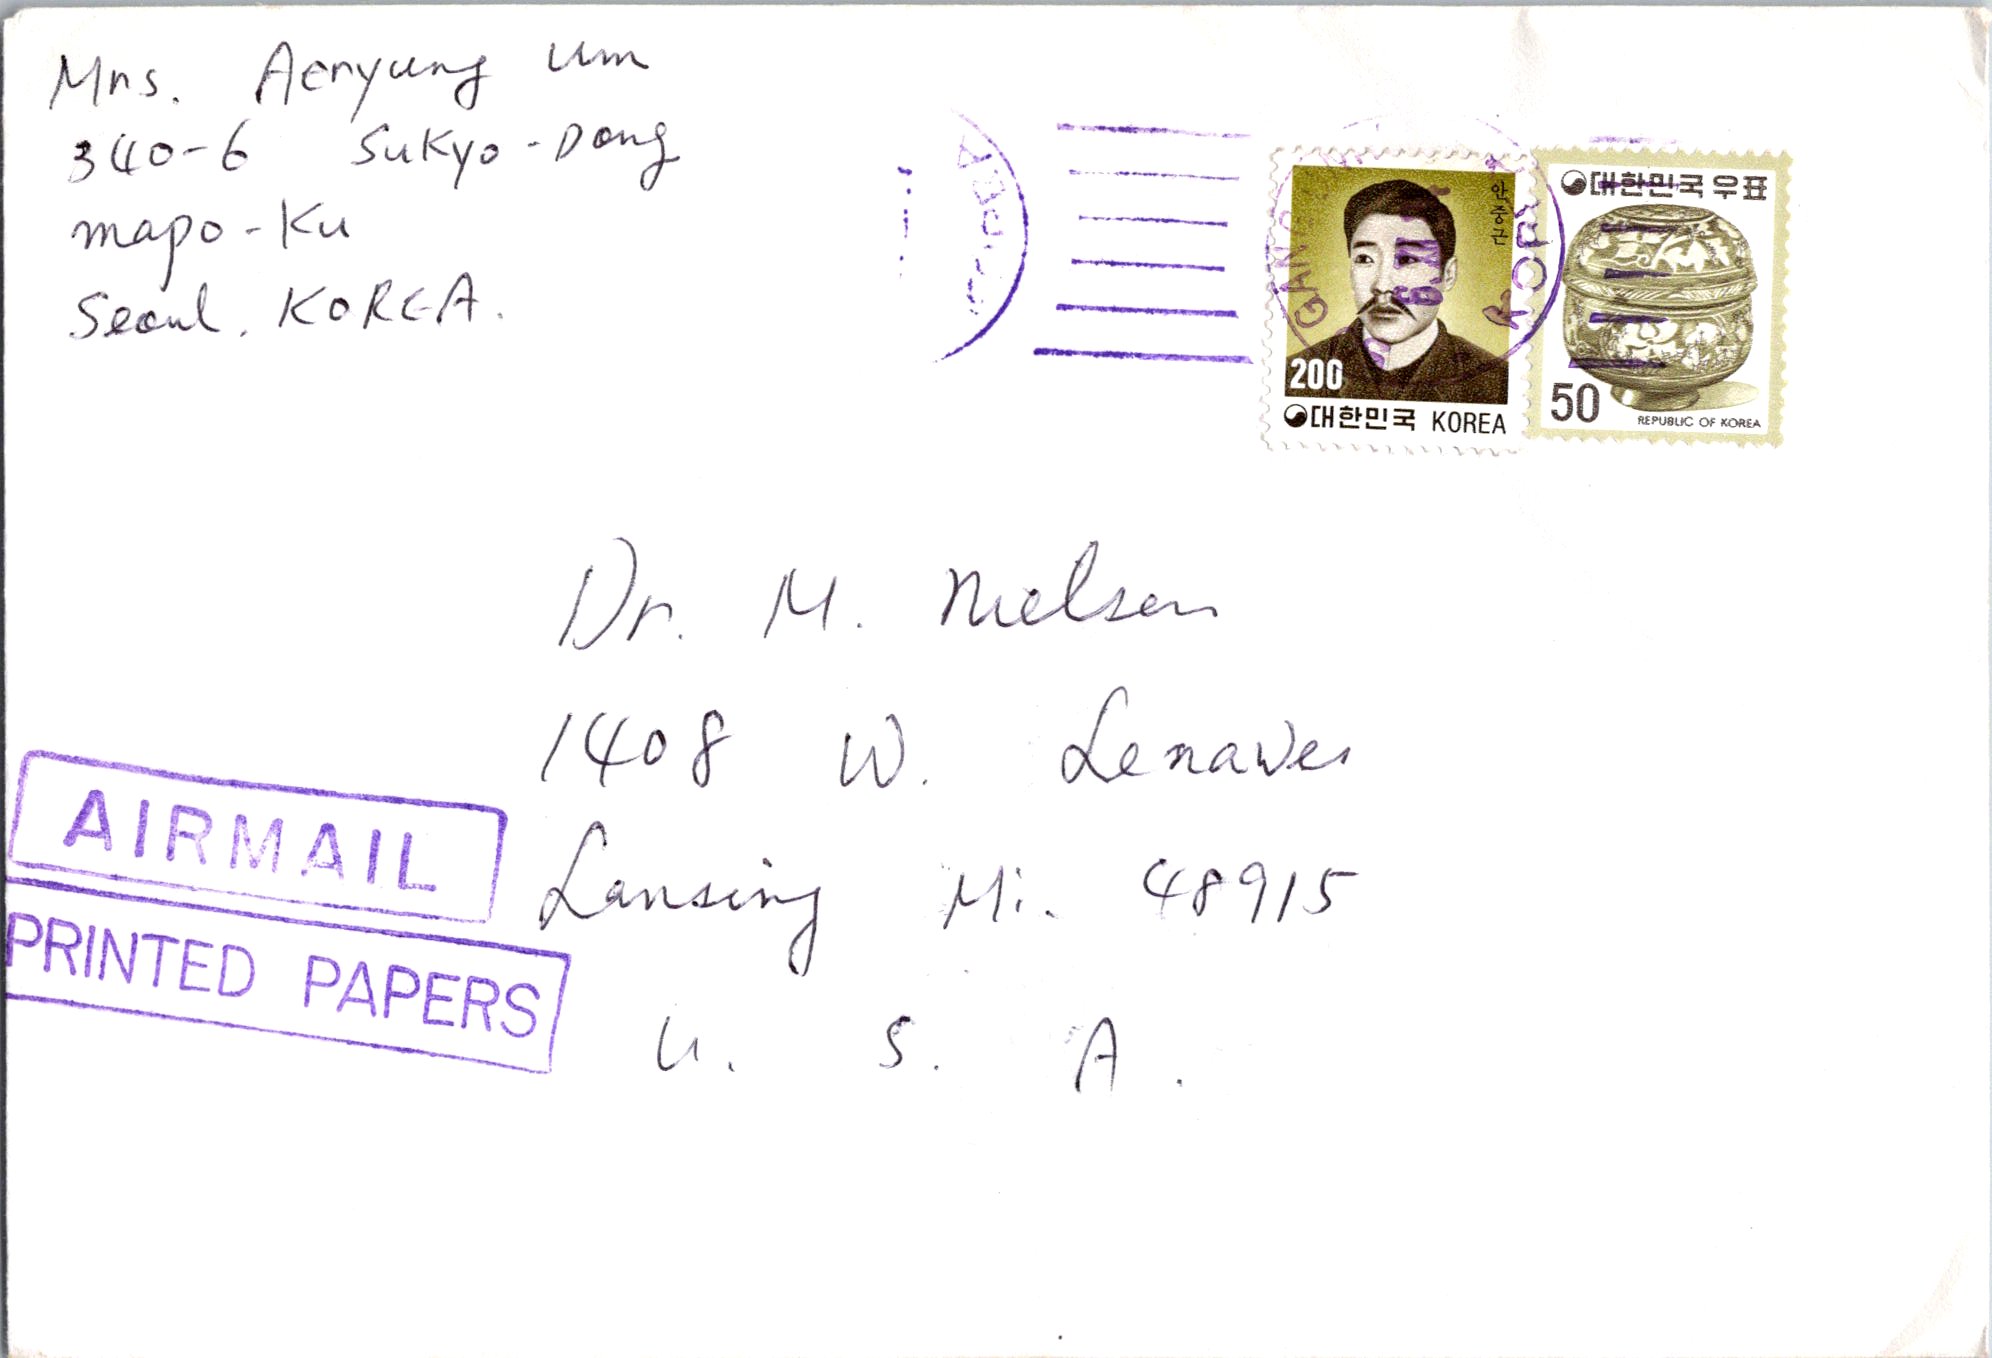 Mrs. Aeryung Um
340-6 Sukyo-Dong
Mapo-Ku
Seoul, KOREA.
안중근
200
대한민국 KOREA
대한민국 우표
50
REPUBLIC OF KOREA
KOREA
Dr. M. Nielsen
1408 W. Lenawee
Lansing Mi. 48915
U. S. A.
AIRMAIL
PRINTED PAPERS